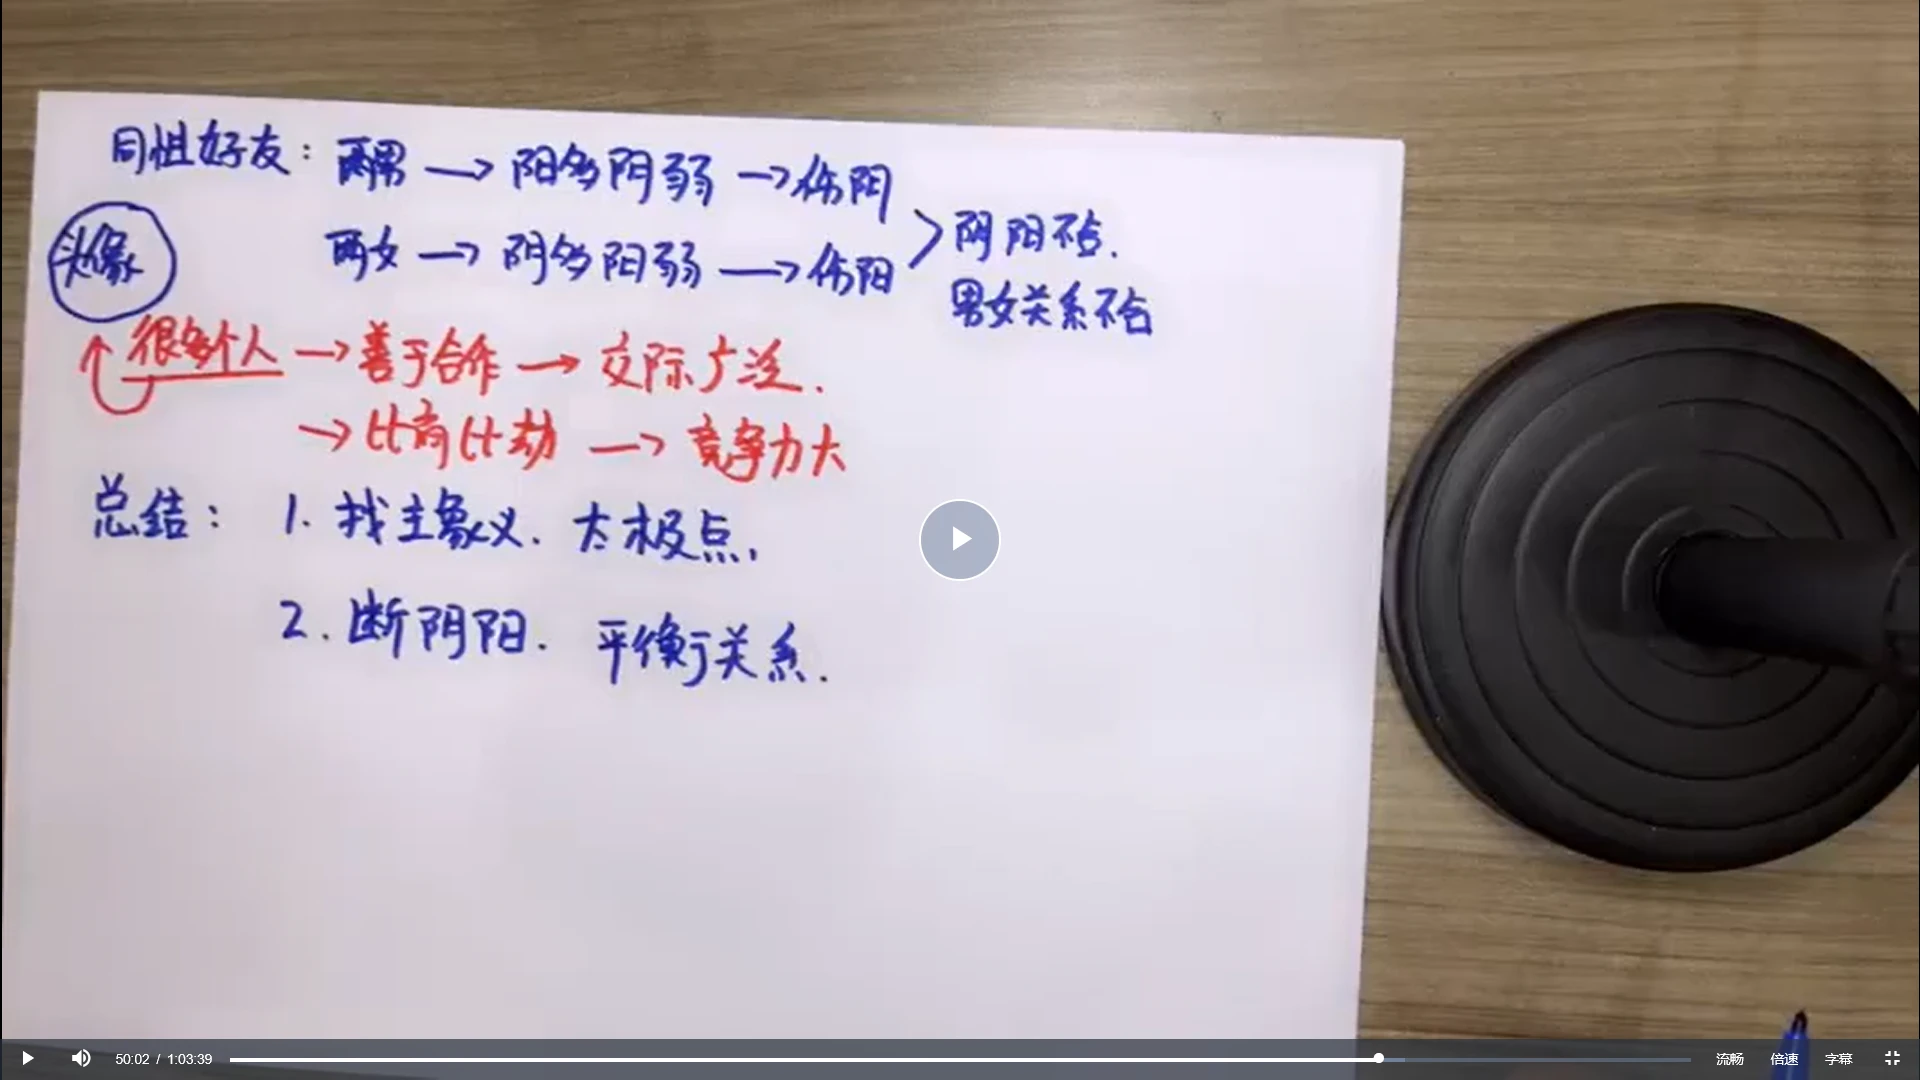 同性好友：两男→阳多阴弱→伤阴
两女→阴多阳弱→伤阳
阴阳不合.
男女关系不合
头像
很多个人→善于合作→交际广泛.
→比肩比劫→竞争力大
总结：1.找主象义.太极点.
2.断阴阳.平衡关系.
50:02 / 1:03:39
流畅 倍速 字幕